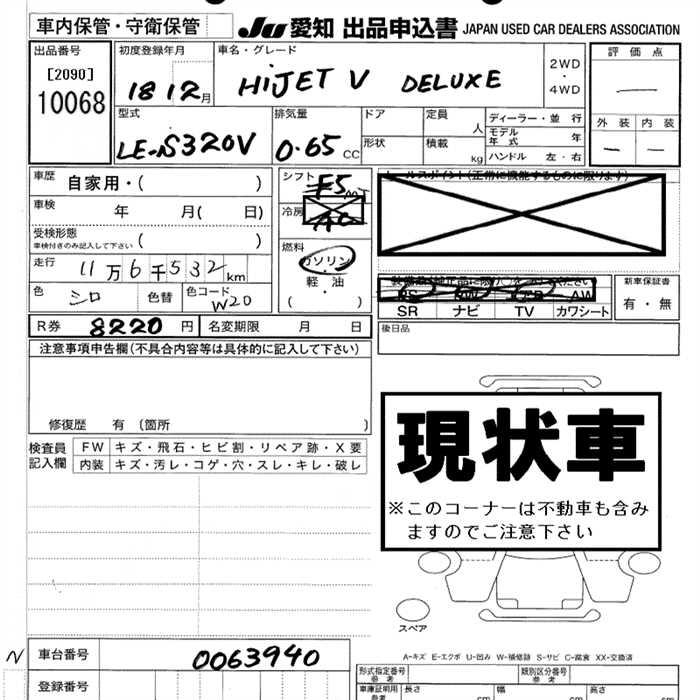 車内保管・守衛保管
JU 愛知 出品申込書 JAPAN USED CAR DEALERS ASSOCIATION
出品番号
[2090]
10068
初度登録年月
18 12月
車名・グレード
HIJET V DELUXE
2WD
・
4WD
評価点
—
外装 内装
— —
型式
LE-S320V
排気量
0.65 CC
ドア
定員
人
形状
積載
kg
ディーラー・並行
モデル年式 年
ハンドル 左・右
車歴
自家用・( )
車検
年 月( 日)
受検形態
車検付きのみ記入して下さい ( )
走行
11万6千532km
色
シロ
色替
色コード
W20
シフト
F5 MT
冷房
AC
燃料
ガソリン
軽・油
( )
セールスポイント(正常に機能するものに限ります)
SR ナビ TV カワシート
新車保証書
有・無
後日品
R券 8220 円
名変期限 月 日
注意事項申告欄(不具合内容等は具体的に記入して下さい)
修復歴 有 (箇所 )
検査員記入欄
FW キズ・飛石・ヒビ割・リペア跡・X要
内装 キズ・汚レ・コゲ・穴・スレ・キレ・破レ
現状車
※このコーナーは不動車も含み
ますのでご注意下さい
スペア
A-キズ E-エクボ U-凹み W-補修跡 S-サビ C-腐食 XX-交換済
N
車台番号 0063940
登録番号
型式指定番号
参考
類別区分番号
参考
車庫証明用
参考
長さ cm
幅 cm
高さ cm